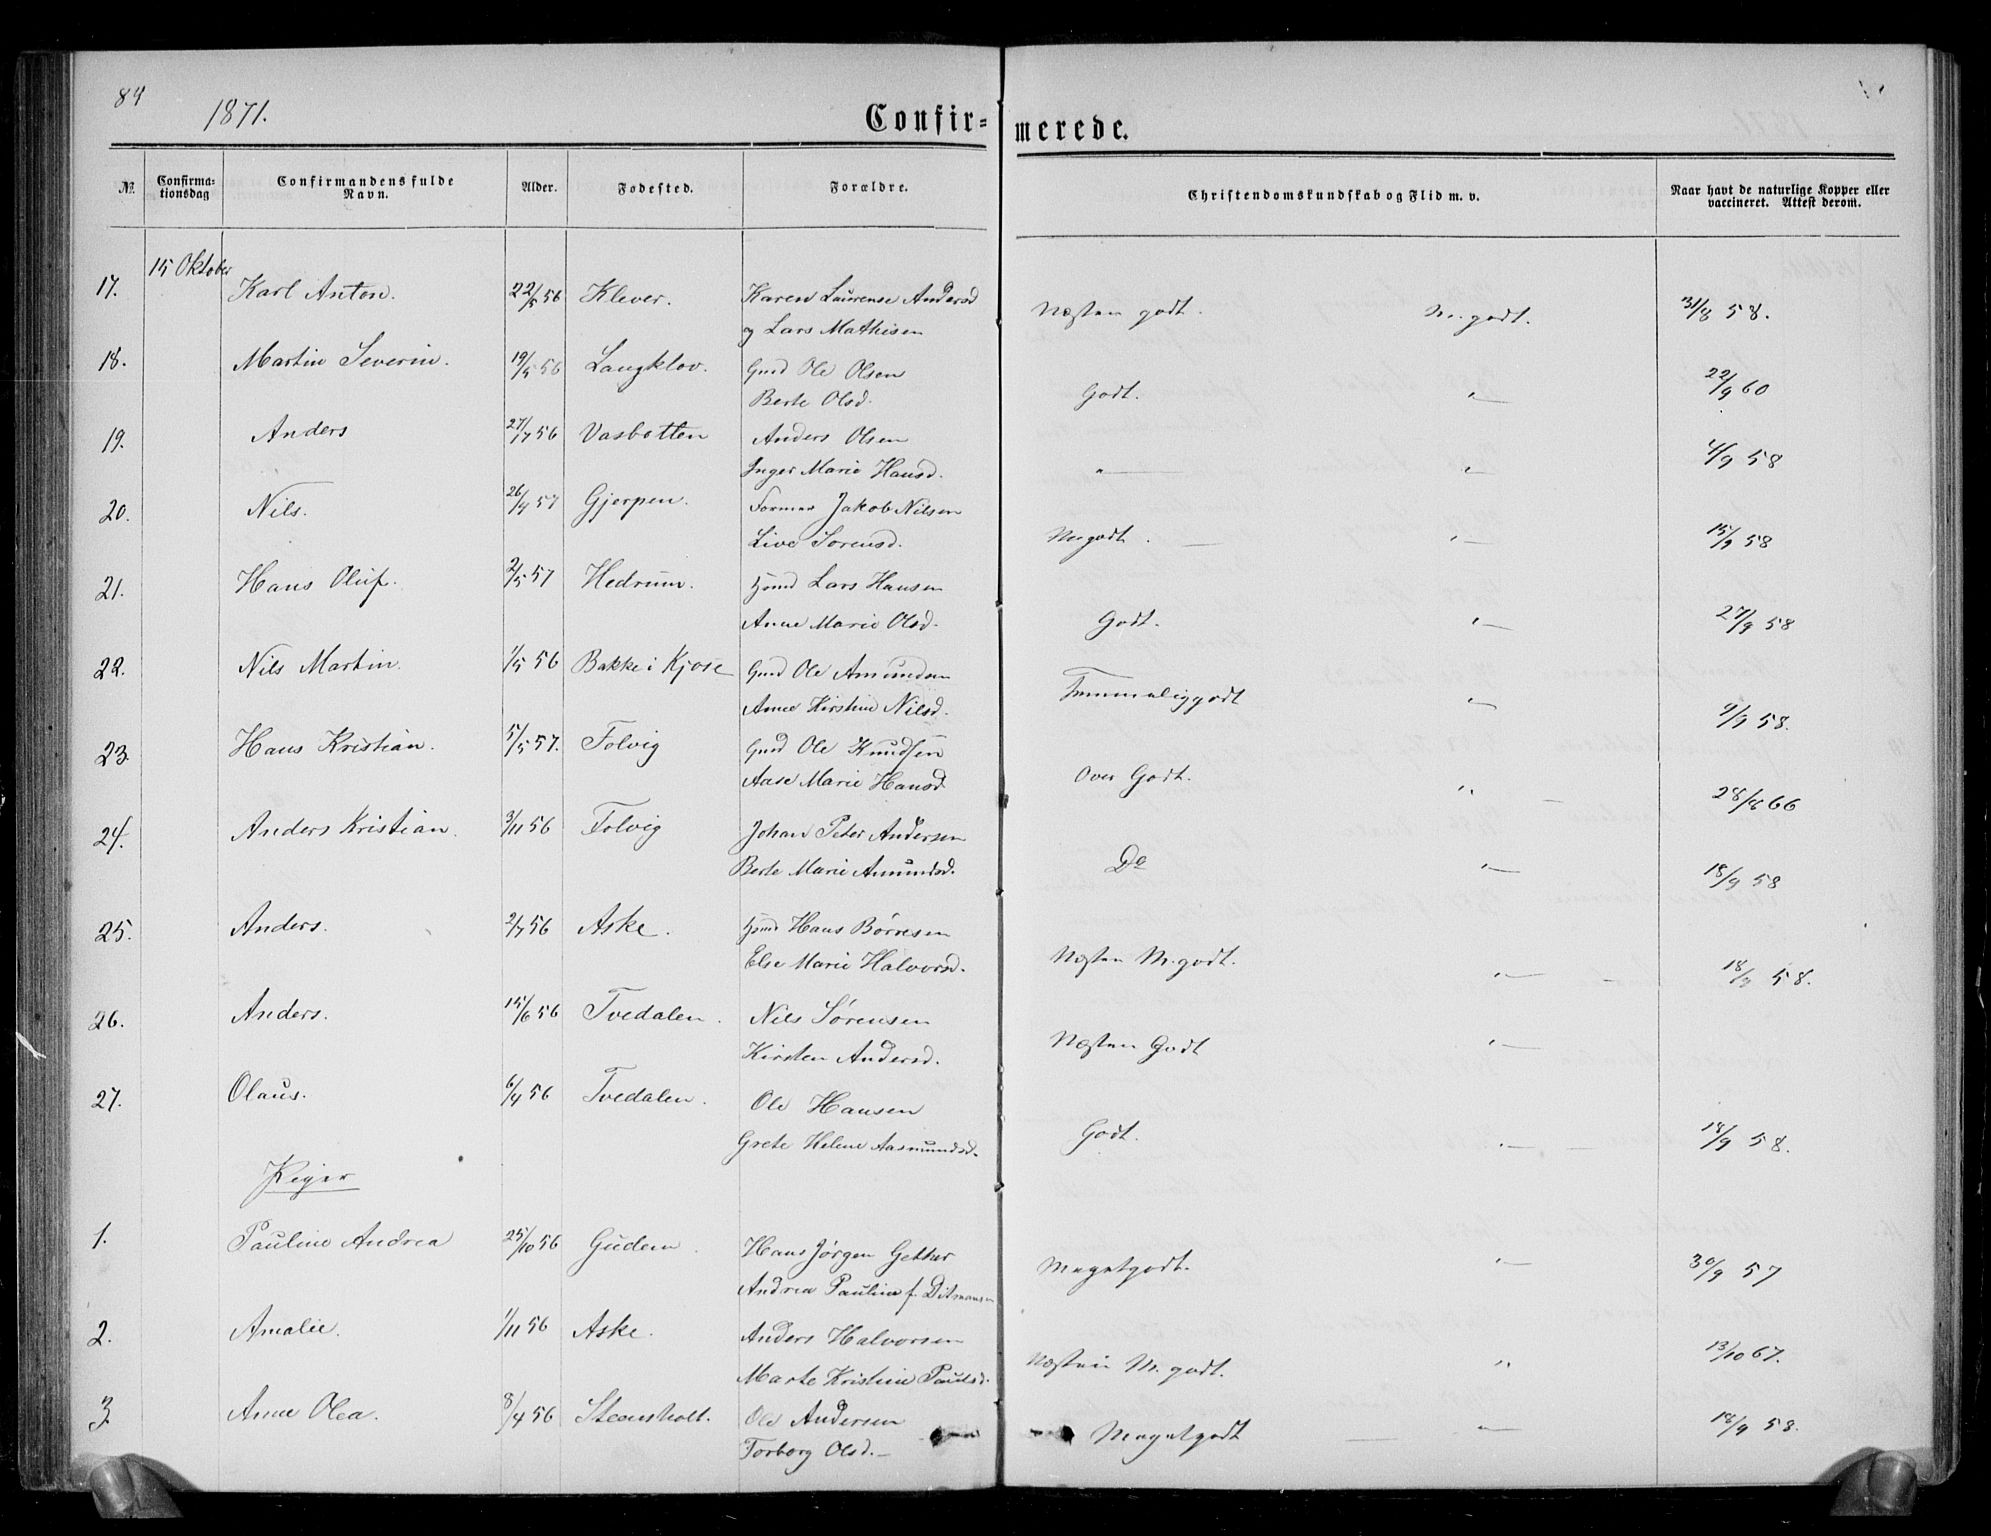 84
1871.
Confir- merede.
No. Confirma-tionsdag Confirmandens fulde Navn. Alder. Fødested. Forældre. Christendomskundskab og Flid m. v. Naar havt de naturlige Kopper eller vaccineret. Attest derom.
15 Oktober
17. Karl Anton. 22/5 56 Klever. Karen Laurense Andersd Næsten godt. M. godt. 31/8 58.
og Lars Mathisen
18. Martin Severin. 19/5 56 Langklov. Gmd Ole Olsen Godt. " 22/9 60
Berte Olsd.
19. Anders 27/7 56 Vasbotten Anders Olsen " " 4/9 58
Inger Marie Hansd.
20. Nils. 26/4 57 Gjerpen. Former Jakob Nilsen M. godt. " 15/9 58
Live Sorensd.
21. Hans Oluf. 2/5 57 Hedrum. Hmd Lars Hansen Godt. " 27/9 58
Anne Marie Olsd.
22. Nils Martin. 1/5 56 Bakke i Kjose Gmd Ole Amundsen Temmeliggodt " 9/9 58.
Anne Kirstine Nilsd.
23. Hans Kristian. 5/5 57. Folvig Gmd Ole Knudsen Over Godt. " 28/8 66
Aase Marie Hansd
24. Anders Kristian. 3/11 56 Folvig Johan Peter Andersen Do " 18/9 58
Berte Marie Amundsd.
25. Anders. 2/7 56 Aske. Hmd Hans Børresen Næsten M. godt. " 18/9 58.
Else Marie Halvorsd.
26. Anders. 15/6 56 Tvedalen. Nils Sørensen Næsten Godt "
Kirsten Andersd.
27. Olaus. 6/4 56 Tvedalen. Ole Hansen Godt. " 18/9 58.
Grete Helene Aasmundsd.
Piger
1. Pauline Andrea 25/10 56 Gudem. Hans Jørgen Gether Megetgodt. " 30/9 57
Andrea Pauline f. Ditmansen
2. Amalie. 1/11 56 Aske. Anders Halvorsen Næsten M. godt. " 13/10 67.
Marte Kristine Paulsd.
3. Anne Olea. 8/4 56 Steensholt. Ole Andersen Megetgodt " 18/9 58.
Torborg Olsd.